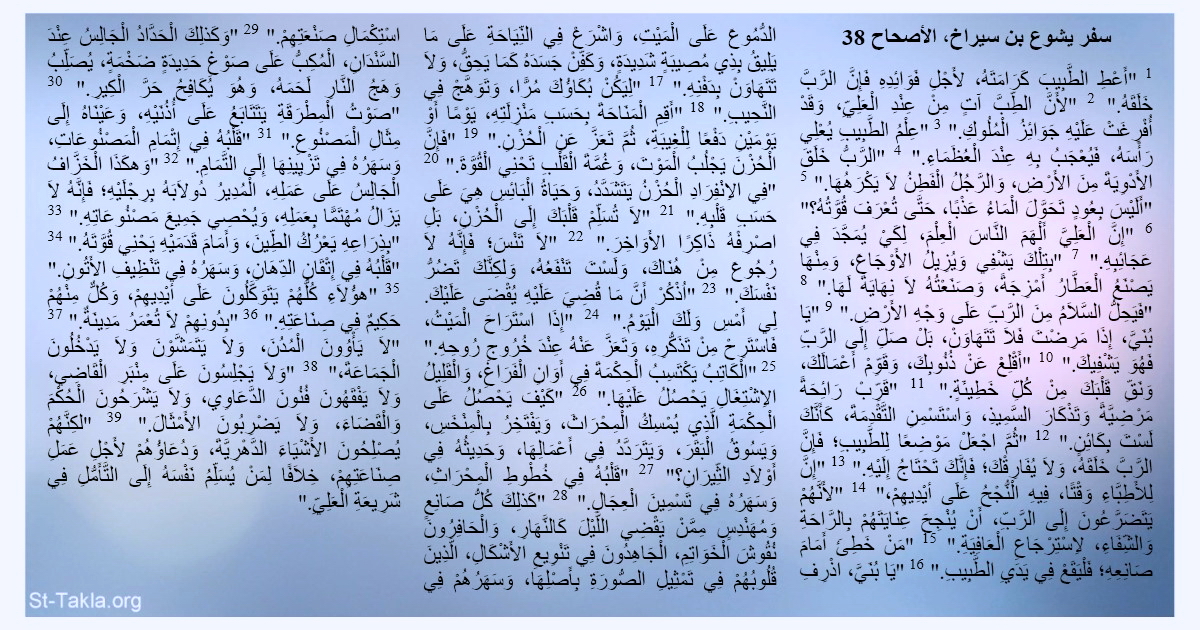 سفر يشوع بن سيراخ، الأصحاح 38
1 "أَعْطِ الطَّبِيبَ كَرَامَتَهُ، لأَجْلِ فَوَائِدِهِ فَإِنَّ الرَّبَّ
خَلَقَهُ." 2 "لأَنَّ الطِّبَّ آتٍ مِنْ عِنْدِ الْعَلِيِّ، وَقَدْ
أُفْرِغَتْ عَلَيْهِ جَوَائِزُ الْمُلُوكِ." 3 "عِلْمُ الطَّبِيبِ يُعْلِي
رَأْسَهُ، فَيُعْجَبُ بِهِ عِنْدَ الْعُظَمَاءِ." 4 "الرَّبُّ خَلَقَ
الأَدْوِيَةَ مِنَ الأَرْضِ، وَالرَّجُلُ الْفَطِنُ لاَ يَكْرَهُهَا." 5
"أَلَيْسَ بِعُودٍ تَحَوَّلَ الْمَاءُ عَذْبًا، حَتَّى تُعْرَفَ قُوَّتُهُ؟"
6 "إِنَّ الْعَلِيَّ أَلْهَمَ النَّاسَ الْعِلْمَ، لِكَيْ يُمَجَّدَ فِي
عَجَائِبِهِ." 7 "بِتِلْكَ يَشْفِي وَيُزِيلُ الأَوْجَاعَ، وَمِنْهَا
يَصْنَعُ الْعَطَّارُ أَمْزِجَةً، وَصَنْعَتُهُ لاَ نِهَايَةَ لَهَا." 8
"فَيَحِلُّ السَّلاَمُ مِنَ الرَّبِّ عَلَى وَجْهِ الأَرْضِ." 9 "يَا
بُنَيَّ، إِذَا مَرِضْتَ فَلاَ تَتَهَاوَنْ، بَلْ صَلِّ إِلَى الرَّبِّ
فَهُوَ يَشْفِيكَ." 10 "أَقْلِعْ عَنْ ذُنُوبِكَ، وَقَوِّمْ أَعْمَالَكَ،
وَنَقِّ قَلْبَكَ مِنْ كُلِّ خَطِيئَةٍ." 11 "قَرِّبْ رَائِحَةً
مَرْضِيَّةً وَتَذْكَارَ السَّمِيذِ، وَاسْتَسْمِنِ التَّقْدِمَةَ، كَأَنَّكَ
لَسْتَ بِكَائِنٍ." 12 "ثُمَّ اجْعَلْ مَوْضِعًا لِلطَّبِيبِ؛ فَإِنَّ
الرَّبَّ خَلَقَهُ، وَلاَ يُفَارِقْكَ؛ فَإِنَّكَ تَحْتَاجُ إِلَيْهِ." 13 "إِنَّ
لِلأَطِبَّاءِ وَقْتًا، فِيهِ النُّجْحُ عَلَى أَيْدِيهِمْ،" 14 "لأَنَّهُمْ
يَتَضَرَّعُونَ إِلَى الرَّبِّ، أَنْ يُنْجِحَ عِنَايَتَهُمْ بِالرَّاحَةِ
وَالشِّفَاءِ، لاِسْتِرْجَاعِ الْعَافِيَةِ." 15 "مَنْ خَطِئَ أَمَامَ
صَانِعِهِ؛ فَلْيَقَعْ فِي يَدَيِ الطَّبِيبِ." 16 "يَا بُنَيَّ، اذْرِفِ
الدُّمُوعَ عَلَى الْمَيْتِ، وَاشْرَعْ فِي النِّيَاحَةِ عَلَى مَا
يَلِيقُ بِذِي مُصِيبَةٍ شَدِيدَةٍ، وَكَفِّنْ جَسَدَهُ كَمَا يَحِقُّ، وَلاَ
تَتَهَاوَنْ بِدَفْنِهِ." 17 "لِيَكُنْ بُكَاؤُكَ مُرًّا، وَتَوَهَّجْ فِي
النَّحِيبِ." 18 "أَقِمِ الْمَنَاحَةَ بِحَسَبِ مَنْزِلَتِهِ، يَوْمًا أَوْ
يَوْمَيْنِ دَفْعًا لِلْغِيبَةِ، ثُمَّ تَعَزَّ عَنِ الْحُزْنِ." 19 "فَإِنَّ
الْحُزْنَ يَجْلُبُ الْمَوْتَ، وَغُمَّةَ الْقَلْبِ تَحْنِي الْقُوَّةَ." 20
"فِي الاِنْفِرَادِ الْحُزْنُ يَتَشَدَّدُ، وَحَيَاةُ الْبَائِسِ هِيَ عَلَى
حَسَبِ قَلْبِهِ." 21 "لاَ تُسَلِّمْ قَلْبَكَ إِلَى الْحُزْنِ، بَلِ
اصْرِفْهُ ذَاكِرًا الأَوَاخِرَ." 22 "لاَ تَنْسَ؛ فَإِنَّهُ لاَ
رُجُوعَ مِنْ هُنَاكَ، وَلَسْتَ تَنْفَعُهُ، وَلكِنَّكَ تَضُرُّ
نَفْسَكَ." 23 "اُذْكُرْ أَنَّ مَا قُضِيَ عَلَيْهِ يُقْضَى عَلَيْكَ.
لِي أَمْسِ وَلَكَ الْيَوْمُ." 24 "إِذَا اسْتَرَاحَ الْمَيْتُ،
فَاسْتَرِحْ مِنْ تَذَكُّرِهِ، وَتَعَزَّ عَنْهُ عِنْدَ خُرُوجِ رُوحِهِ."
25 "اَلْكَاتِبُ يَكْتَسِبُ الْحِكْمَةَ فِي أَوَانِ الْفَرَاغِ، وَالْقَلِيلُ
الاِشْتِغَالِ يَحْصُلُ عَلَيْهَا." 26 "كَيْفَ يَحْصُلُ عَلَى
الْحِكْمَةِ الَّذِي يُمْسِكُ الْمِحْرَاثَ، وَيَفْتَخِرُ بِالْمِنْخَسِ،
وَيَسُوقُ الْبَقَرَ، وَيَتَرَدَّدُ فِي أَعْمَالِهَا، وَحَدِيثُهُ فِي
أَوْلاَدِ الثِّيرَانِ؟" 27 "قَلْبُهُ فِي خُطُوطِ الْمِحْرَاثِ،
وَسَهَرُهُ فِي تَسْمِينِ الْعِجَالِ." 28 "كَذلِكَ كُلُّ صَانِعٍ
وَمُهَنْدِسٍ مِمَّنْ يَقْضِي اللَّيْلَ كَالنَّهَارِ، وَالْحَافِرُونَ
نُقُوشَ الْخَوَاتِمِ، الْجَاهِدُونَ فِي تَنْوِيعِ الأَشْكَالِ، الَّذِينَ
قُلُوبُهُمْ فِي تَمْثِيلِ الصُّورَةِ بِأَصْلِهَا، وَسَهَرُهُمْ فِي
اسْتِكْمَالِ صَنْعَتِهِمْ." 29 "وَكَذلِكَ الْحَدَّادُ الْجَالِسُ عِنْدَ
السَّنْدَانِ، الْمُكِبُّ عَلَى صَوْغِ حَدِيدَةٍ ضَخْمَةٍ، يُصَلِّبُ
وَهَجُ النَّارِ لَحْمَهُ، وَهُوَ يُكَافِحُ حَرَّ الْكِيرِ." 30
"صَوْتُ الْمِطْرَقَةِ يَتَتَابَعُ عَلَى أُذُنَيْهِ، وَعَيْنَاهُ إِلَى
مِثَالِ الْمَصْنُوعِ." 31 "قَلْبُهُ فِي إِتْمَامِ الْمَصْنُوعَاتِ،
وَسَهَرُهُ فِي تَزْيِينِهَا إِلَى التَّمَامِ." 32 "وَهكَذَا الْخَزَّافُ
الْجَالِسُ عَلَى عَمَلِهِ، الْمُدِيرُ دُولاَبَهُ بِرِجْلَيْهِ؛ فَإِنَّهُ لاَ
يَزَالُ مُهْتَمًّا بِعَمَلِهِ، وَيُحْصِي جَمِيعَ مَصْنُوعَاتِهِ." 33
"بِذِرَاعِهِ يَعْرُكُ الطِّينَ، وَأَمَامَ قَدَمَيْهِ يَحْنِي قُوَّتَهُ." 34
"قَلْبُهُ فِي إِتْقَانِ الدِّهَانِ، وَسَهَرُهُ فِي تَنْظِيفِ الأَتُّونِ."
35 "هؤُلاَءِ كُلُّهُمْ يَتَوَكَّلُونَ عَلَى أَيْدِيهِمْ، وَكُلٌّ مِنْهُمْ
حَكِيمٌ فِي صِنَاعَتِهِ." 36 "بِدُونِهِمْ لاَ تُعْمَرُ مَدِينَةٌ" 37
"لاَ يَأْوُونَ الْمُدُنَ، وَلاَ يَتَمَشَّوْنَ وَلاَ يَدْخُلُونَ
الْجَمَاعَةَ،" 38 "وَلاَ يَجْلِسُونَ عَلَى مِنْبَرِ الْقَاضِي،
وَلاَ يَفْقَهُونَ فُنُونَ الدَّعَاوِي، وَلاَ يَشْرَحُونَ الْحُكْمَ
وَالْقَضَاءَ، وَلاَ يَضْرِبُونَ الأَمْثَالَ." 39 "لكِنَّهُمْ
يُصْلِحُونَ الأَشْيَاءَ الدَّهْرِيَّةَ، وَدُعَاؤُهُمْ لأَجْلِ عَمَلِ
صِنَاعَتِهِمْ، خِلاَفًا لِمَنْ يُسَلِّمُ نَفْسَهُ إِلَى التَّأَمُّلِ فِي
شَرِيعَةِ الْعَلِيِّ."
St-Takla.org